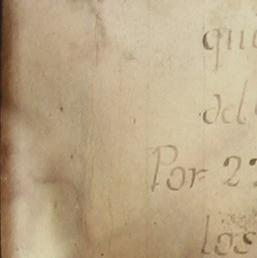 qui
del
Por 2
los